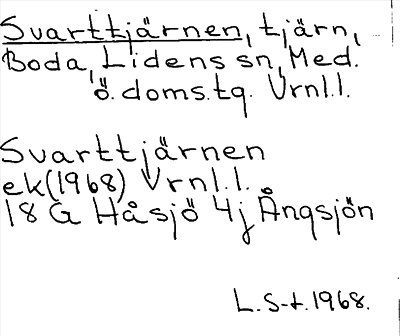 Svarttjärnen, tjärn,
Boda, Lidens sn, Med.
ö. doms.tg. Vrnl.l.
Svarttjärnen
ek(1968) Vrnl.l.
18 G Håsjö 4j Ångsjön
L. S-t. 1968.